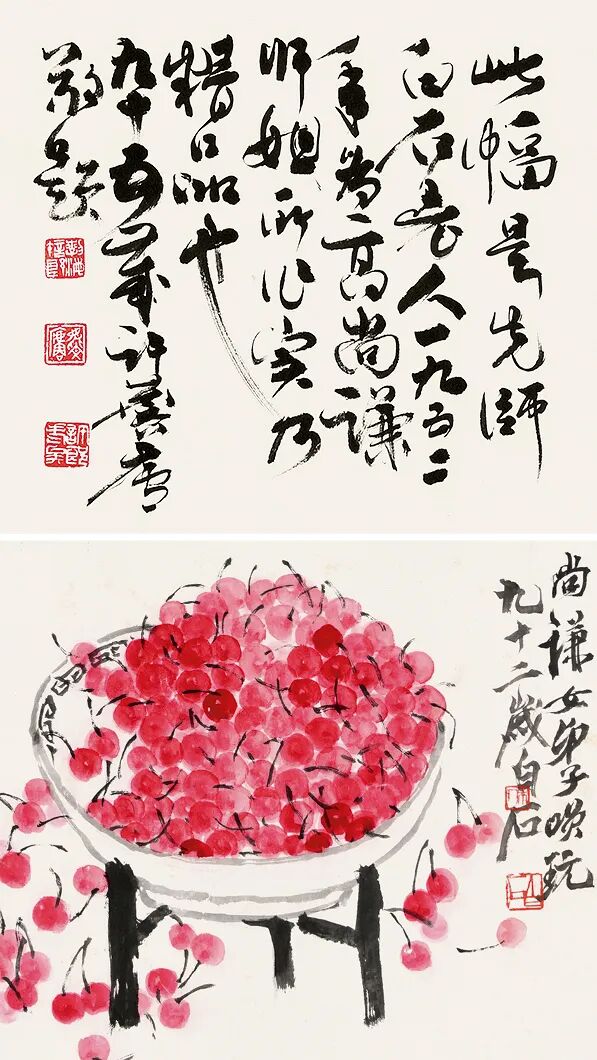 此幅是先師
白石老人一九五二
年為高尚謙
師姐所作實乃
精品也
九十五歲許麐廬
敬題
尚謙女弟子玩
九十二歲白石